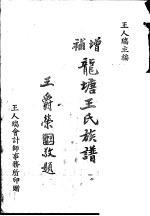 王人瑞主編
增補龍塘王氏族譜
王爵榮敬題
王人瑞會計師事務所印贈